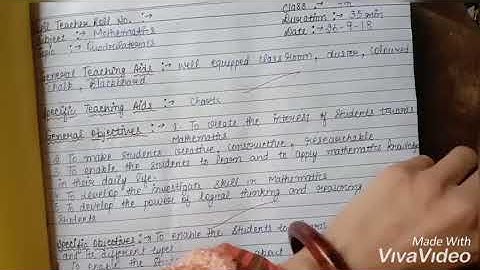 Pupil Teacher Roll No. :→
Class :→
Subject :→ Mathematics
Duration :→ 35 min
Topic :→ Quadrilaterals
Date :→ 26-9-18
General Teaching Aids :→ Well equipped classroom, duster, coloured
chalk, Blackboard
Specific Teaching Aids :→ Charts
General Objectives :→ 1. To create the interest of students towards
Mathematics
2. To make students creative, constructive, researchable
3. To enable the students to learn and to apply mathematics knowledge
in their daily life.
4. To develop the investigate skill in Mathematics
5. To develop the power of logical thinking and reasoning
students
Specific Objectives :→ To enable the students to
and its different types
To enable the about
Made With
VivaVideo